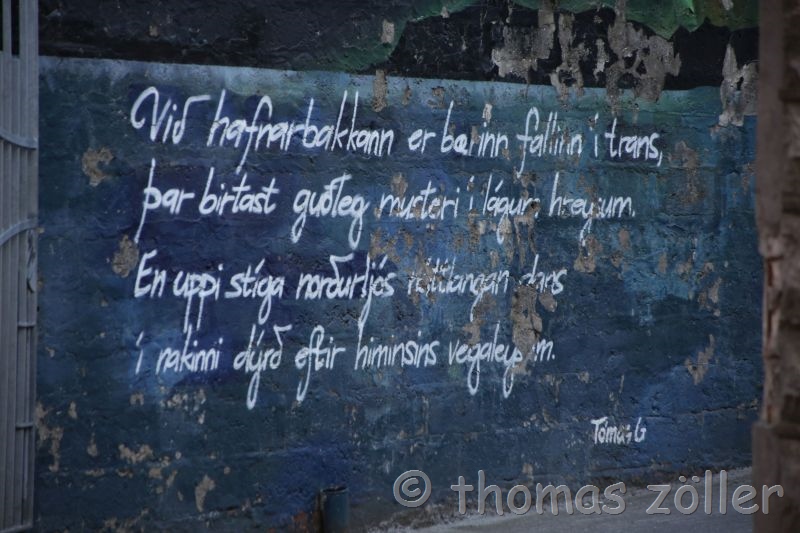 Við hafnarbakkann er bærinn fallinn í trans,
þar birtast guðleg musteri í lágum hreysum.
En uppi stíga norðurljós náttlangan dans
í nakinni dýrð eftir himinsins vegaleysum.
Tómas G
© thomas zöller